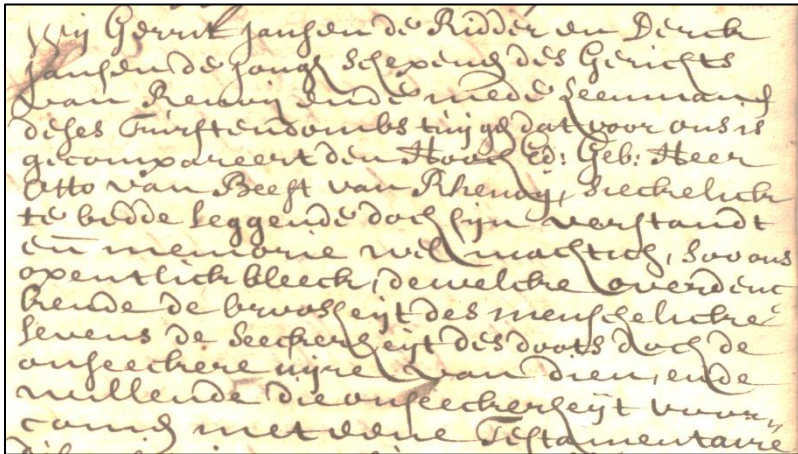 Wij Gerrit Jansen de Ridder en Derck
Jansen de Jongh Schepens des Gerichts
van Renoij ende mede Leenmans
deses Furstendombs tuijgen dat voor ons is
gecompareert den Hooch Ed: Geb: Heer
Otto van Beest van Rhenoij, Sieckelick
te bedde leggende doch sijn verstandt
en memorie wel machtich, soo ons
opentlick bleeck, dewelcke overdenc
kende de broosheijt des menschelicke
levens de seeckerheijt des doots doch de
onseeckere uijre van dien, ende
willende die onseeckerheijt voor
comen met eene Testamentaire